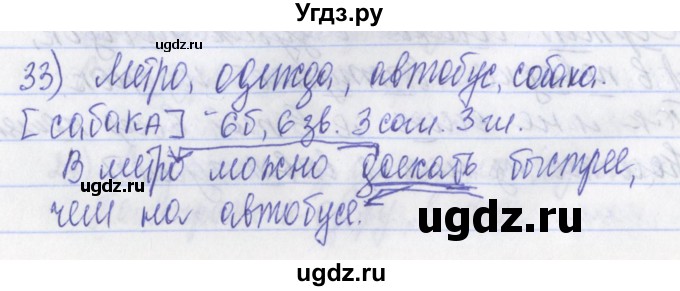 Угдз.ру
ugdz.ru
33) Метро, одежда, автобус, собака.
ugdz.ru
[сабака] - 6б, 6 зв. 3 согл. 3 гл.
ugdz.ru
В метро можно доехать быстрее,
ugdz.ru
чем на автобусе.
ugdz.ru
ugdz.ru
ugdz.ru